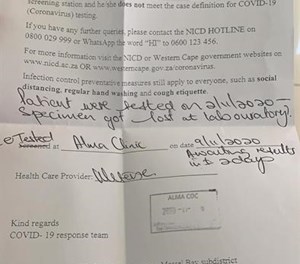 screening station and he/she does not meet the case definition for COVID-19
(Coronavirus) testing.
If you have any further queries, please contact the NICD HOTLINE on
0800 029 999 or WhatsApp the word "HI" to 0600 123 456.
For more information visit the NICD or Western Cape government websites on
www.nicd.ac.za OR www.westerncape.gov.za/coronavirus.
Infection control preventative measures still apply to everyone, such as social
distancing, regular hand washing and cough etiquette.
Patient were tested on 2/11/2020 –
Specimen got lost at laboratory.
Tested
at Alma Clinic on date 9/11/2020
Awaiting results
in 2 days
Health Care Provider:
ALMA CDC
Kind regards
COVID- 19 response team
Bay subdistrict